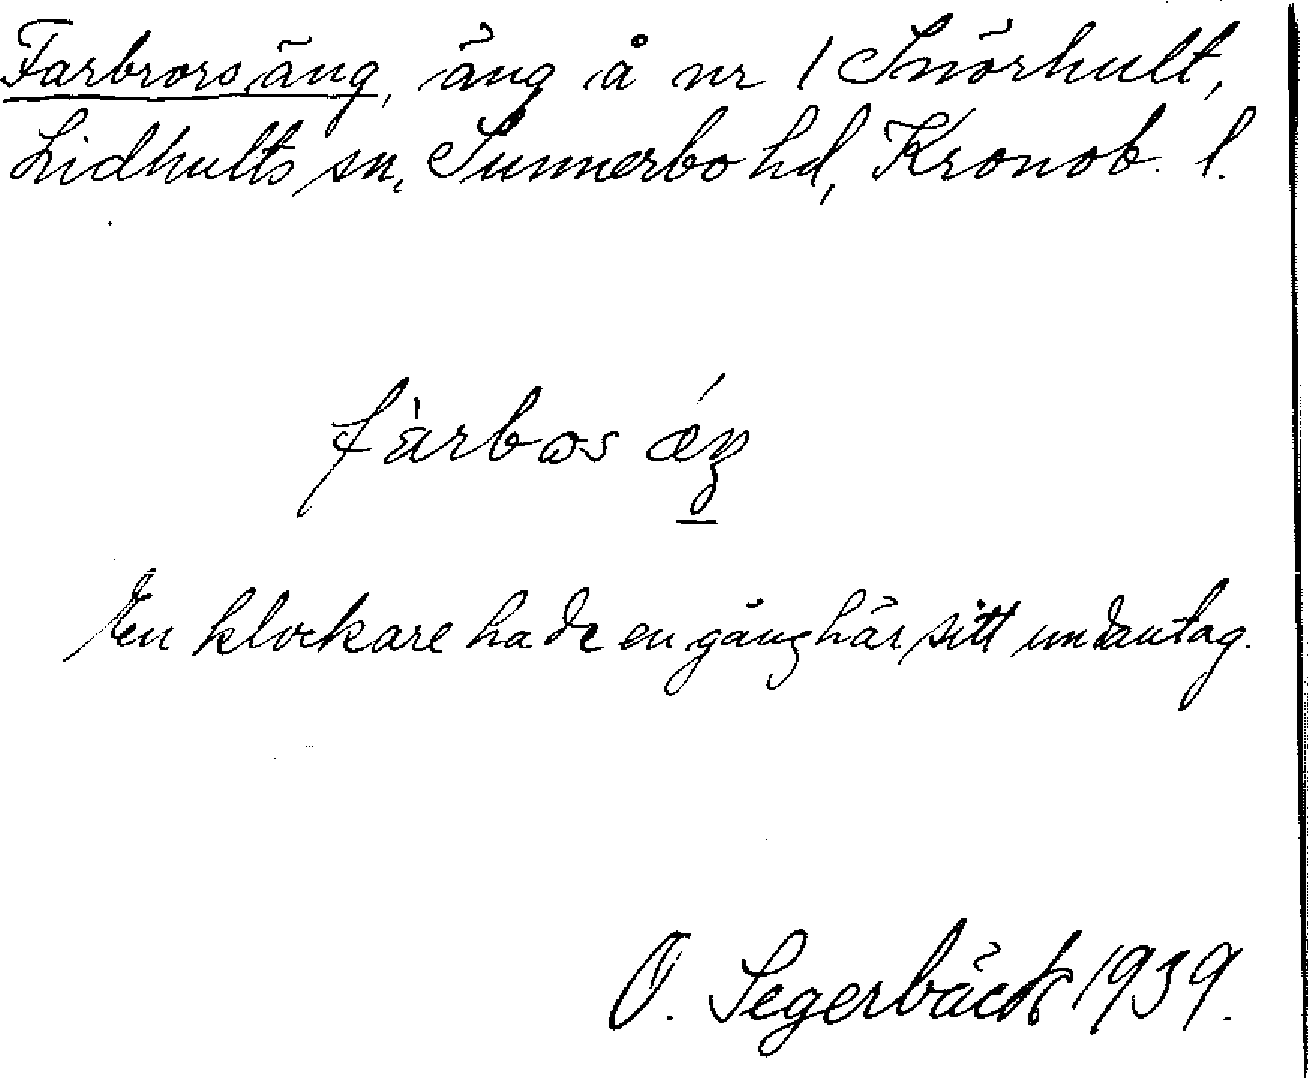 Farbrorsäng, äng å nr 1 Snörhult,
Lidhults sn, Sunnerbo hd, Kronob. l.
fàrbos ǽŋ
En klockare hade en gång här sitt undantag.
O. Segerbäck 1939.